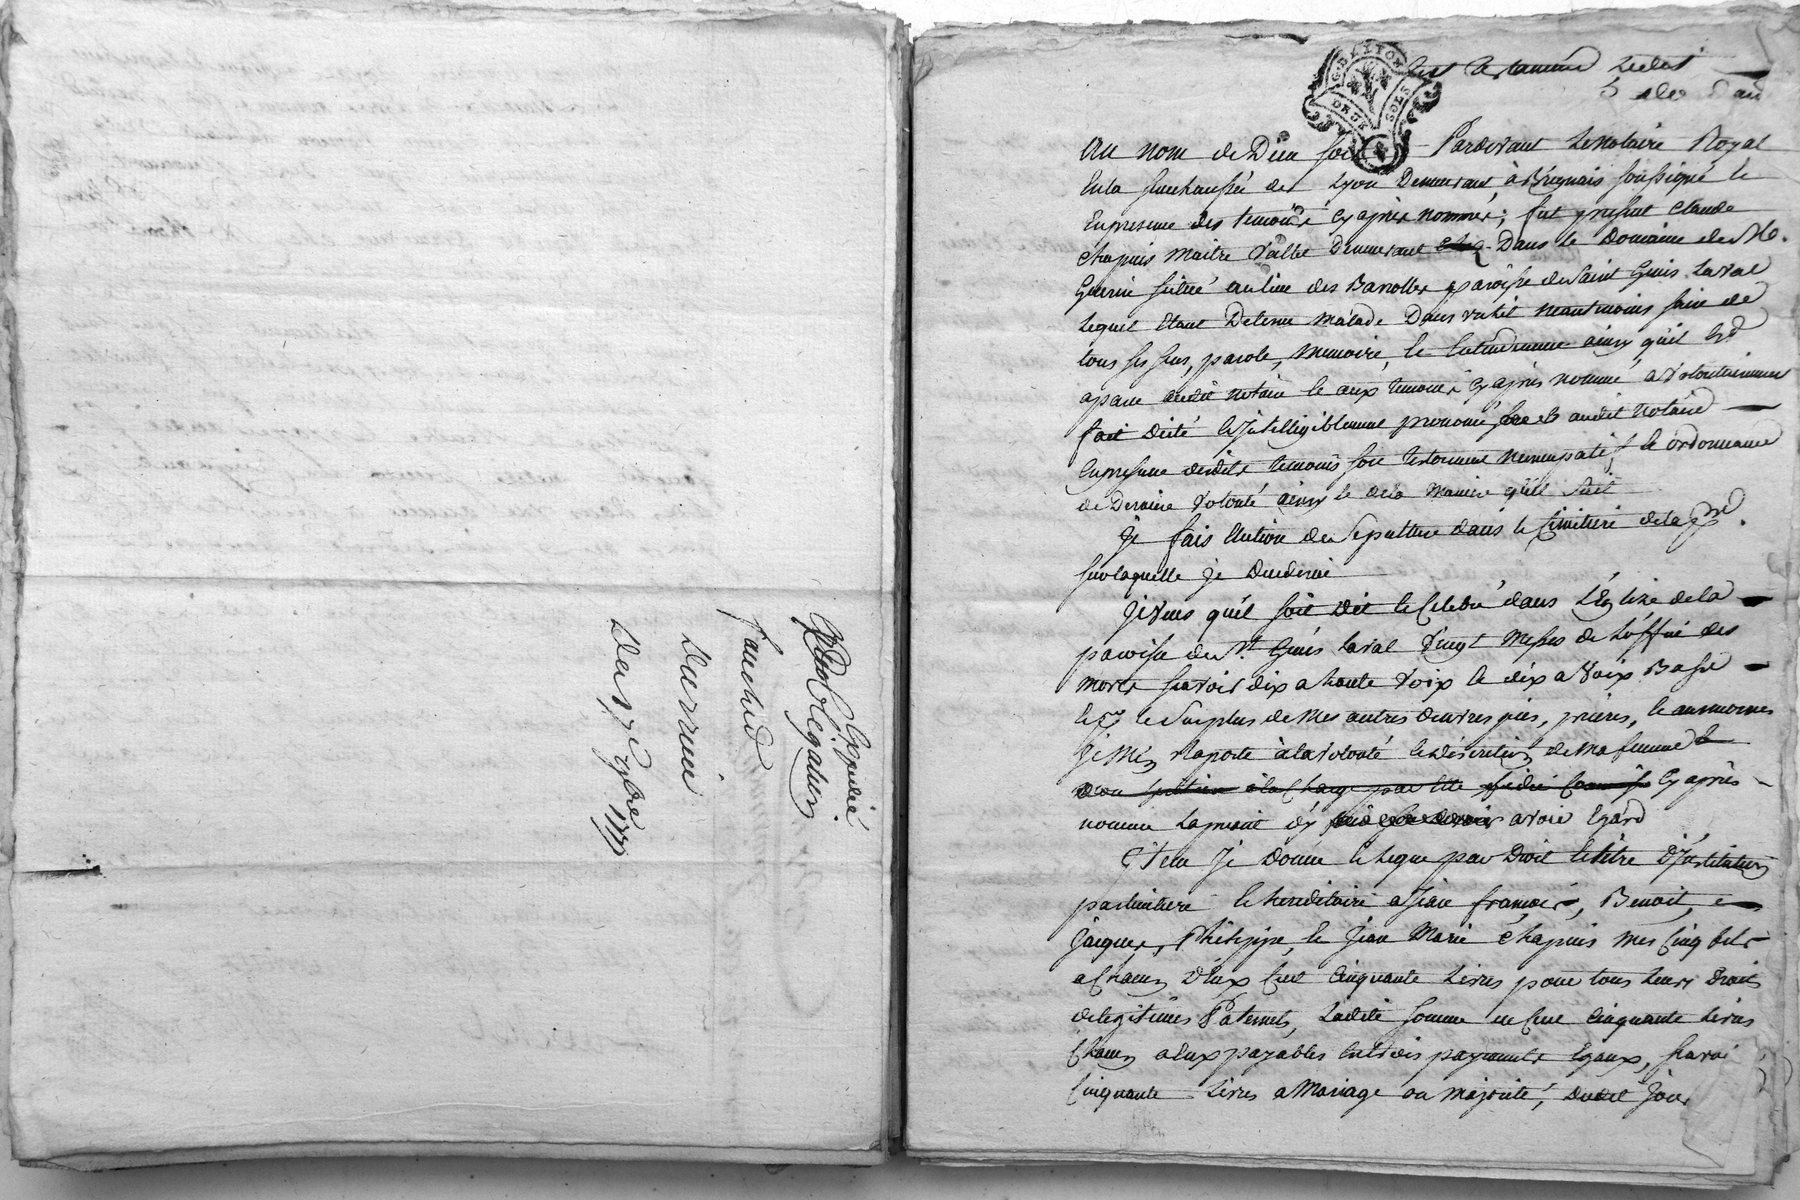 Expedié
fauchid
du 17e 7bre 177
G. DE LYON
DEUX SOLS
Au nom de Dieu soit Pardevant le Notaire Royal
En la senechaussée de Lyon Demeurant à Brignais soussigné &
En presence des temoins cy après nommés; fut present Claude
Chapuis Maitre Valet Demeurant Dans le Domaine de M.
Guerin situé au lieu des Barolles paroisse de Saint Genis Laval
Lequel Etant Detenu Malade Dans un lit neantmoins sain de
tous ses sens, parole, Memoire, & Entendement ainsy qu'il Est
aparu audit notaire & aux temoins cy après nommé a Volontairement
fait dicté & Intelligiblement prononcé audit Notaire
En presence desdits temoins son testament nuncupatif, & ordonnance
de Derniere Volonté ainsy & de la maniere qu'il suit
Je fais Election de Sepulture dans le Cimitiere de la psse
sur laquelle je decederai
Je Veus qu'il soit dit & Celebré dans L'Eglize de la
paroisse de St. Genis Laval Vingt Messes de L'office des
morts scavoir dix a haute Voix & dix a Voix Basse
& qu. le Surplus de Mes autres Oeuvres pies, prieres, & aumornes
Je M'en raporte à la Volonté & discretion de Ma femme
cy après
nommée La priant d'y avoir Egard
Item Je donne & legue par Droit & titre D'Institution
particuliere & hereditaire a Jean François, Benoit,
Jacques, Philippe, & Jean Marie Chapuis mes Cinq fils
a Chacun d'Eux Cent Cinquante Livres pour tous Leurs Droits
de legitimes Paternels, Ladite somme de Cent Cinquante Livres
Chacun a Eux payables En trois payements Egaux, scavoir
Cinquante Livres a Mariage ou Majorité, dudit Jour